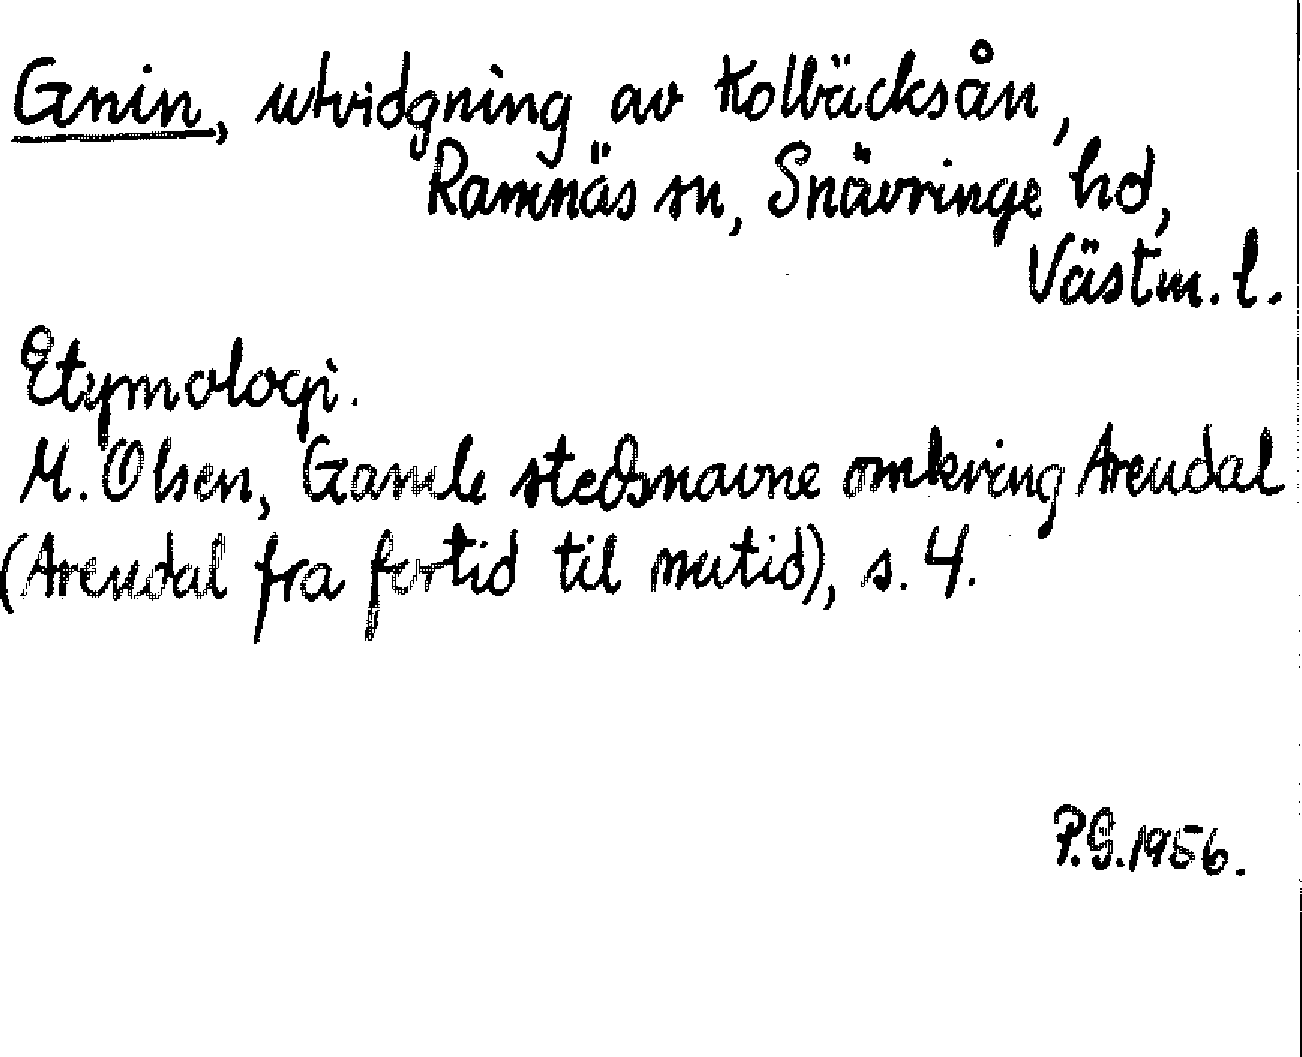 Gnin, utvidgning av Kolbäcksån,
Ramnäs sn, Snävringe hd,
Västm. l.
Etymologi.
M. Olsen, Gamle stedsnavne omkring Arendal
(Arendal fra fortid til nutid), s. 4.
P.G. 1956.